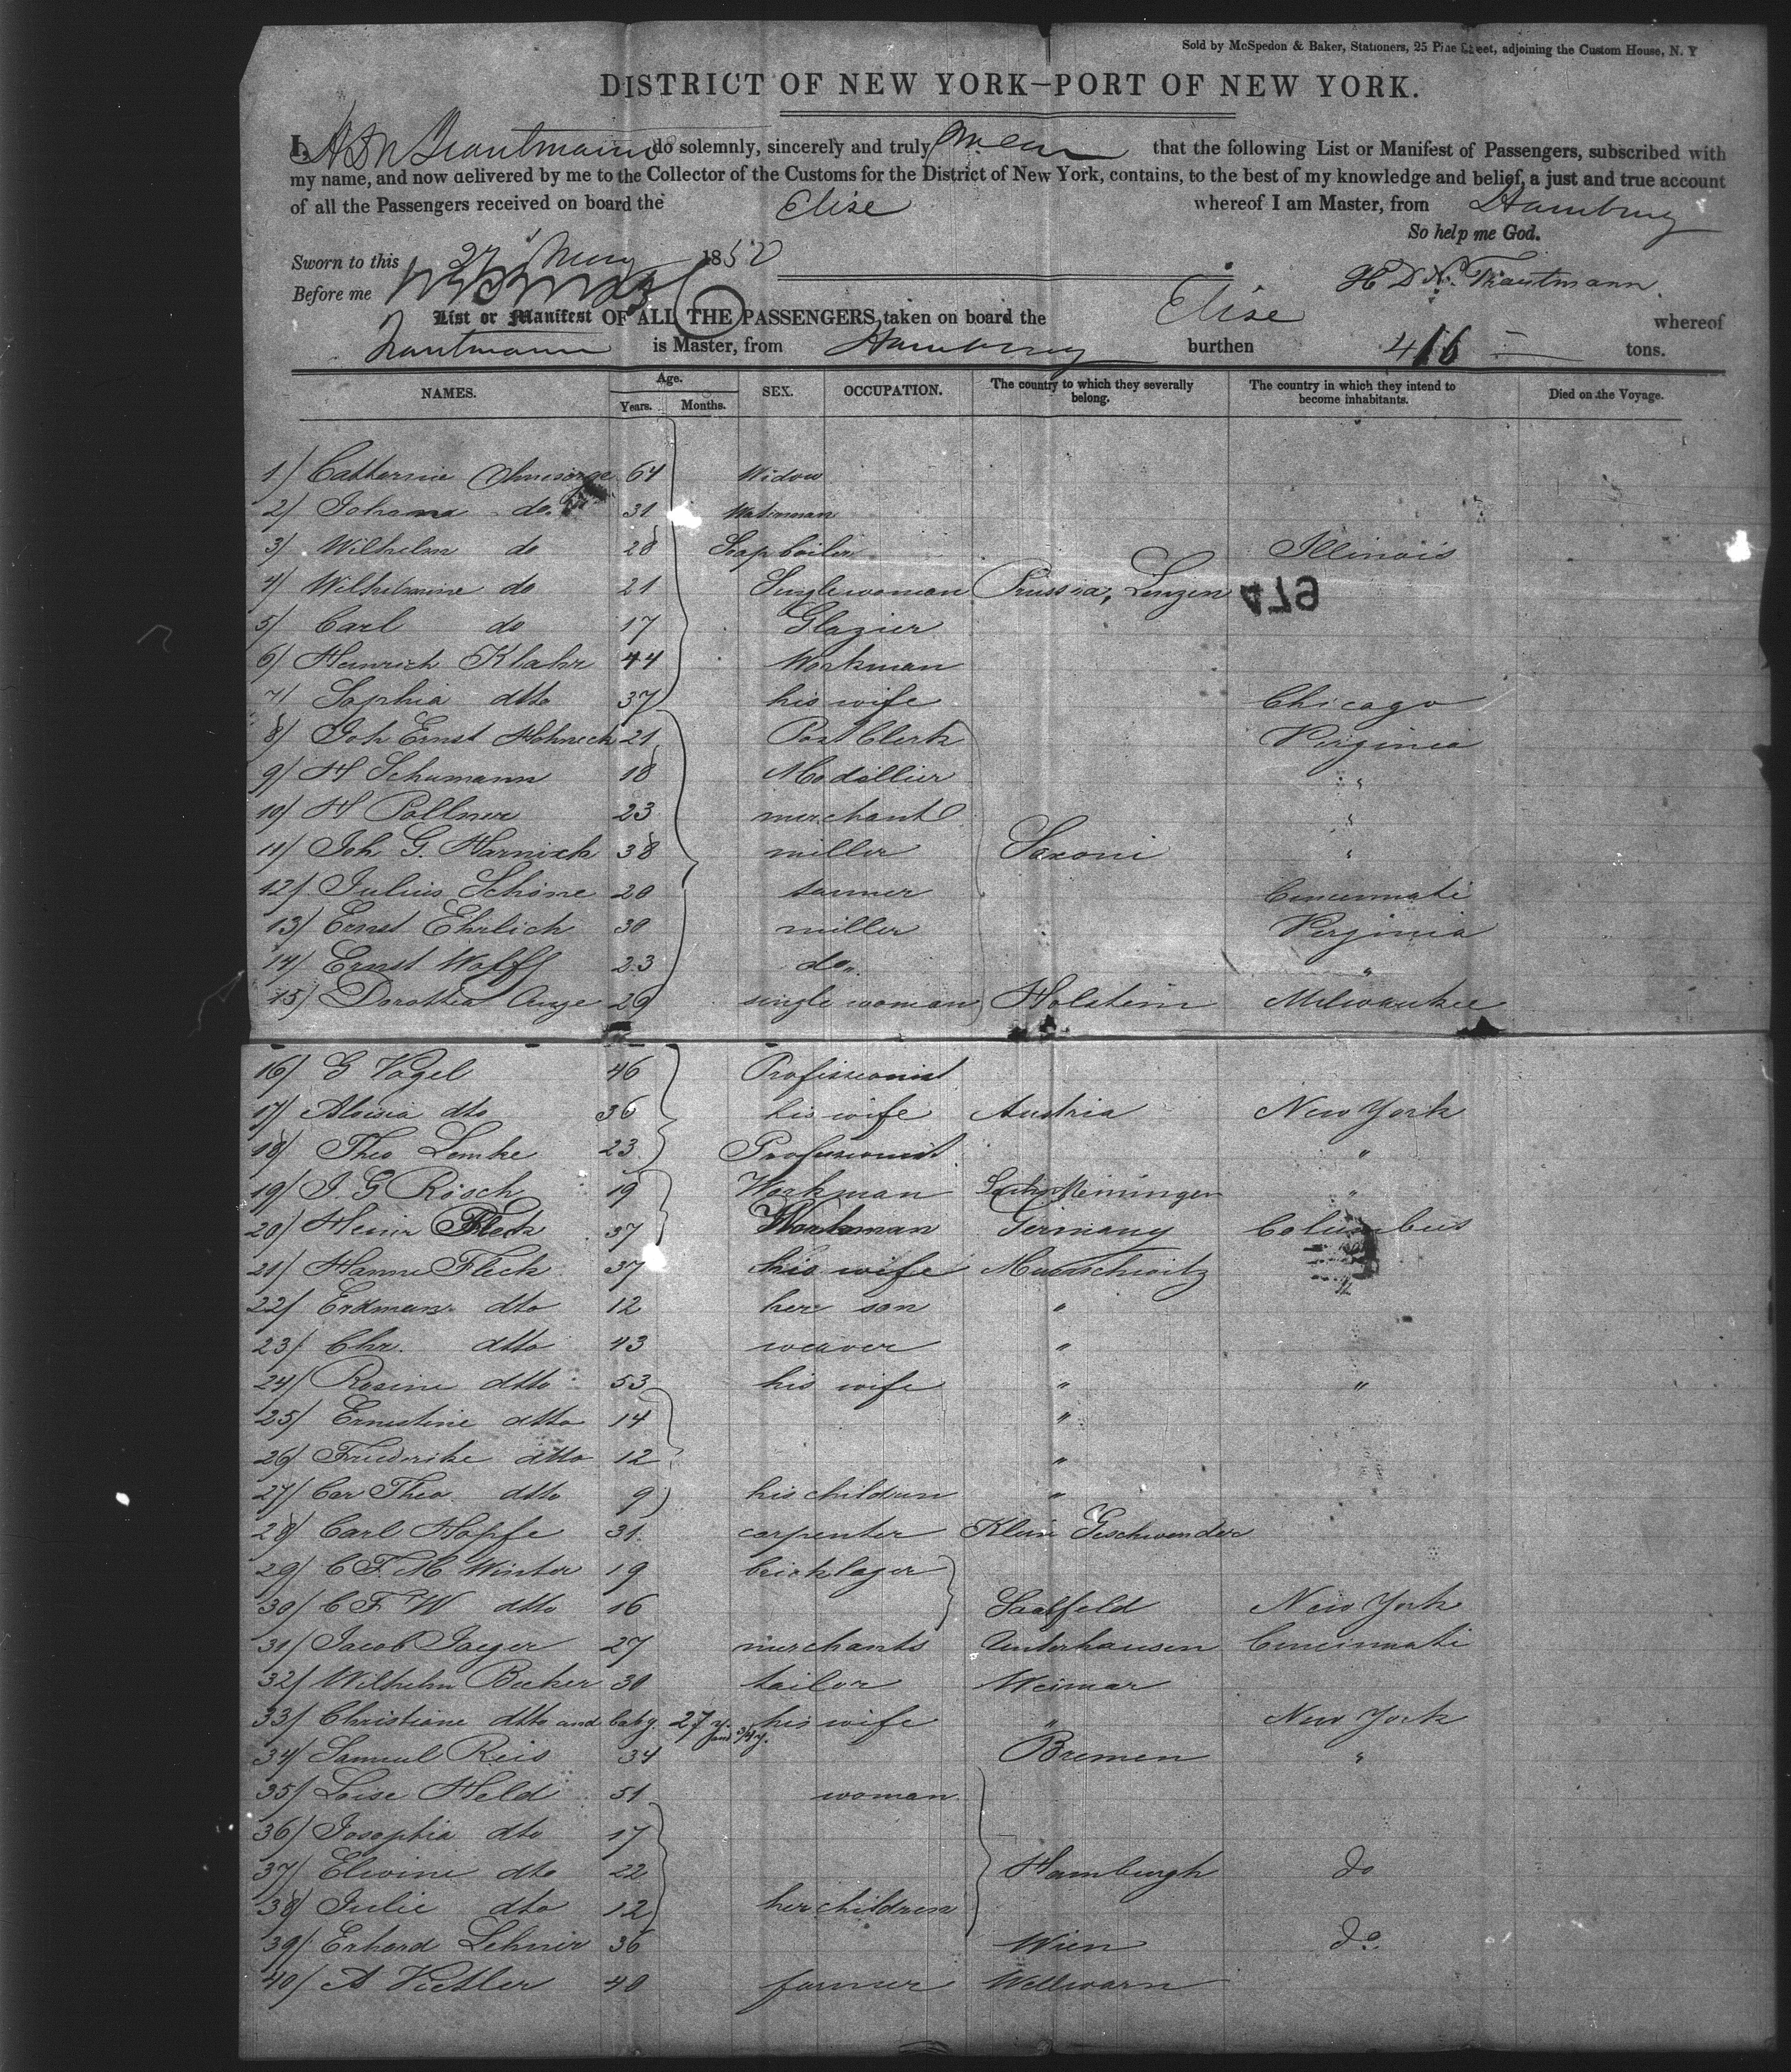 Sold by McSpedon & Baker, Stationers, 25 Pine Street, adjoining the Custom House, N. Y
DISTRICT OF NEW YORK—PORT OF NEW YORK.
I, H D N Trautmann do solemnly, sincerely and truly that the following List or Manifest of Passengers, subscribed with
my name, and now delivered by me to the Collector of the Customs for the District of New York, contains, to the best of my knowledge and belief, a just and true account
of all the Passengers received on board the Elise whereof I am Master, from Hamburg
So help me God.
Sworn to this 27 May 1850
H D N. Trautmann
Before me
List or Manifest OF ALL THE PASSENGERS taken on board the Elise whereof
Trautmann is Master, from Hamburg burthen 416 tons.
NAMES. Age. Years. Months. SEX. OCCUPATION. The country to which they severally belong. The country in which they intend to become inhabitants. Died on the Voyage.
1) Catterine Ohnesorge 64 Widow
2) Johana do. 31
3) Wilhelm do 28 Soap boiler Illinois
4) Wilhelmine do 21 Singlewoman Prussia, Lenzen 479
5) Carl do 17 Glazier
6) Heinrich Klahr 44 Workman
7) Sophia dtto 37 his wife Chicago
8) Joh Ernst Hohneck 21 Post Clerk Virginia
9) H Schumann 18 Modellier "
10) H Pollner 23 merchant "
11) Joh G. Harnisch 38 miller Saxoni "
12) Julius Schöne 20 tanner Cincinnati
13) Ernst Ehrlich 30 miller Virginia
14) Ernst Wolff 23 do "
15) Dorothea 29 single woman Holstein Milwaukee
16) G Vogel 46 Professionist
17) Aloisia dto 36 his wife Austria New York
18) Theo Lemke 23 Professionist "
19) J. G Rösch 19 Workman Sachs Meiningen "
20) Heinr Fleck 37 Workman Germany Columbus
21) Hanne Fleck 37 his wife
22) Erdman dto 12 her son "
23) Chr. dtto 43 weaver "
24) Rosine dtto 53 his wife " "
25) Ernestine dtto 14 "
26) Friederike dtto 12 "
27) Car Theo dtto 9 his children "
28) Carl Hopfe 31 carpenter Klein Geschwender
29) C F. M Winter 19 bricklager
30) C F W dtto 16 Saalfeld New York
31) Jacob Jaeger 27 merchants Unterhausen Cincinnati
32) Wilhelm Becker 30 tailor Weimar
33) Christiane dtto and baby 27 y. and 3/4 y. his wife " New York
34) Samuel Reis 34 Bremen "
35) Loise Held 51 woman
36) Josophia dto 17
37) Elwine dto 22 Hamburgh do
38) Julie dto 12 her children
39) Erhard Lehnir 36 Wien do.
40) A 40 farmer